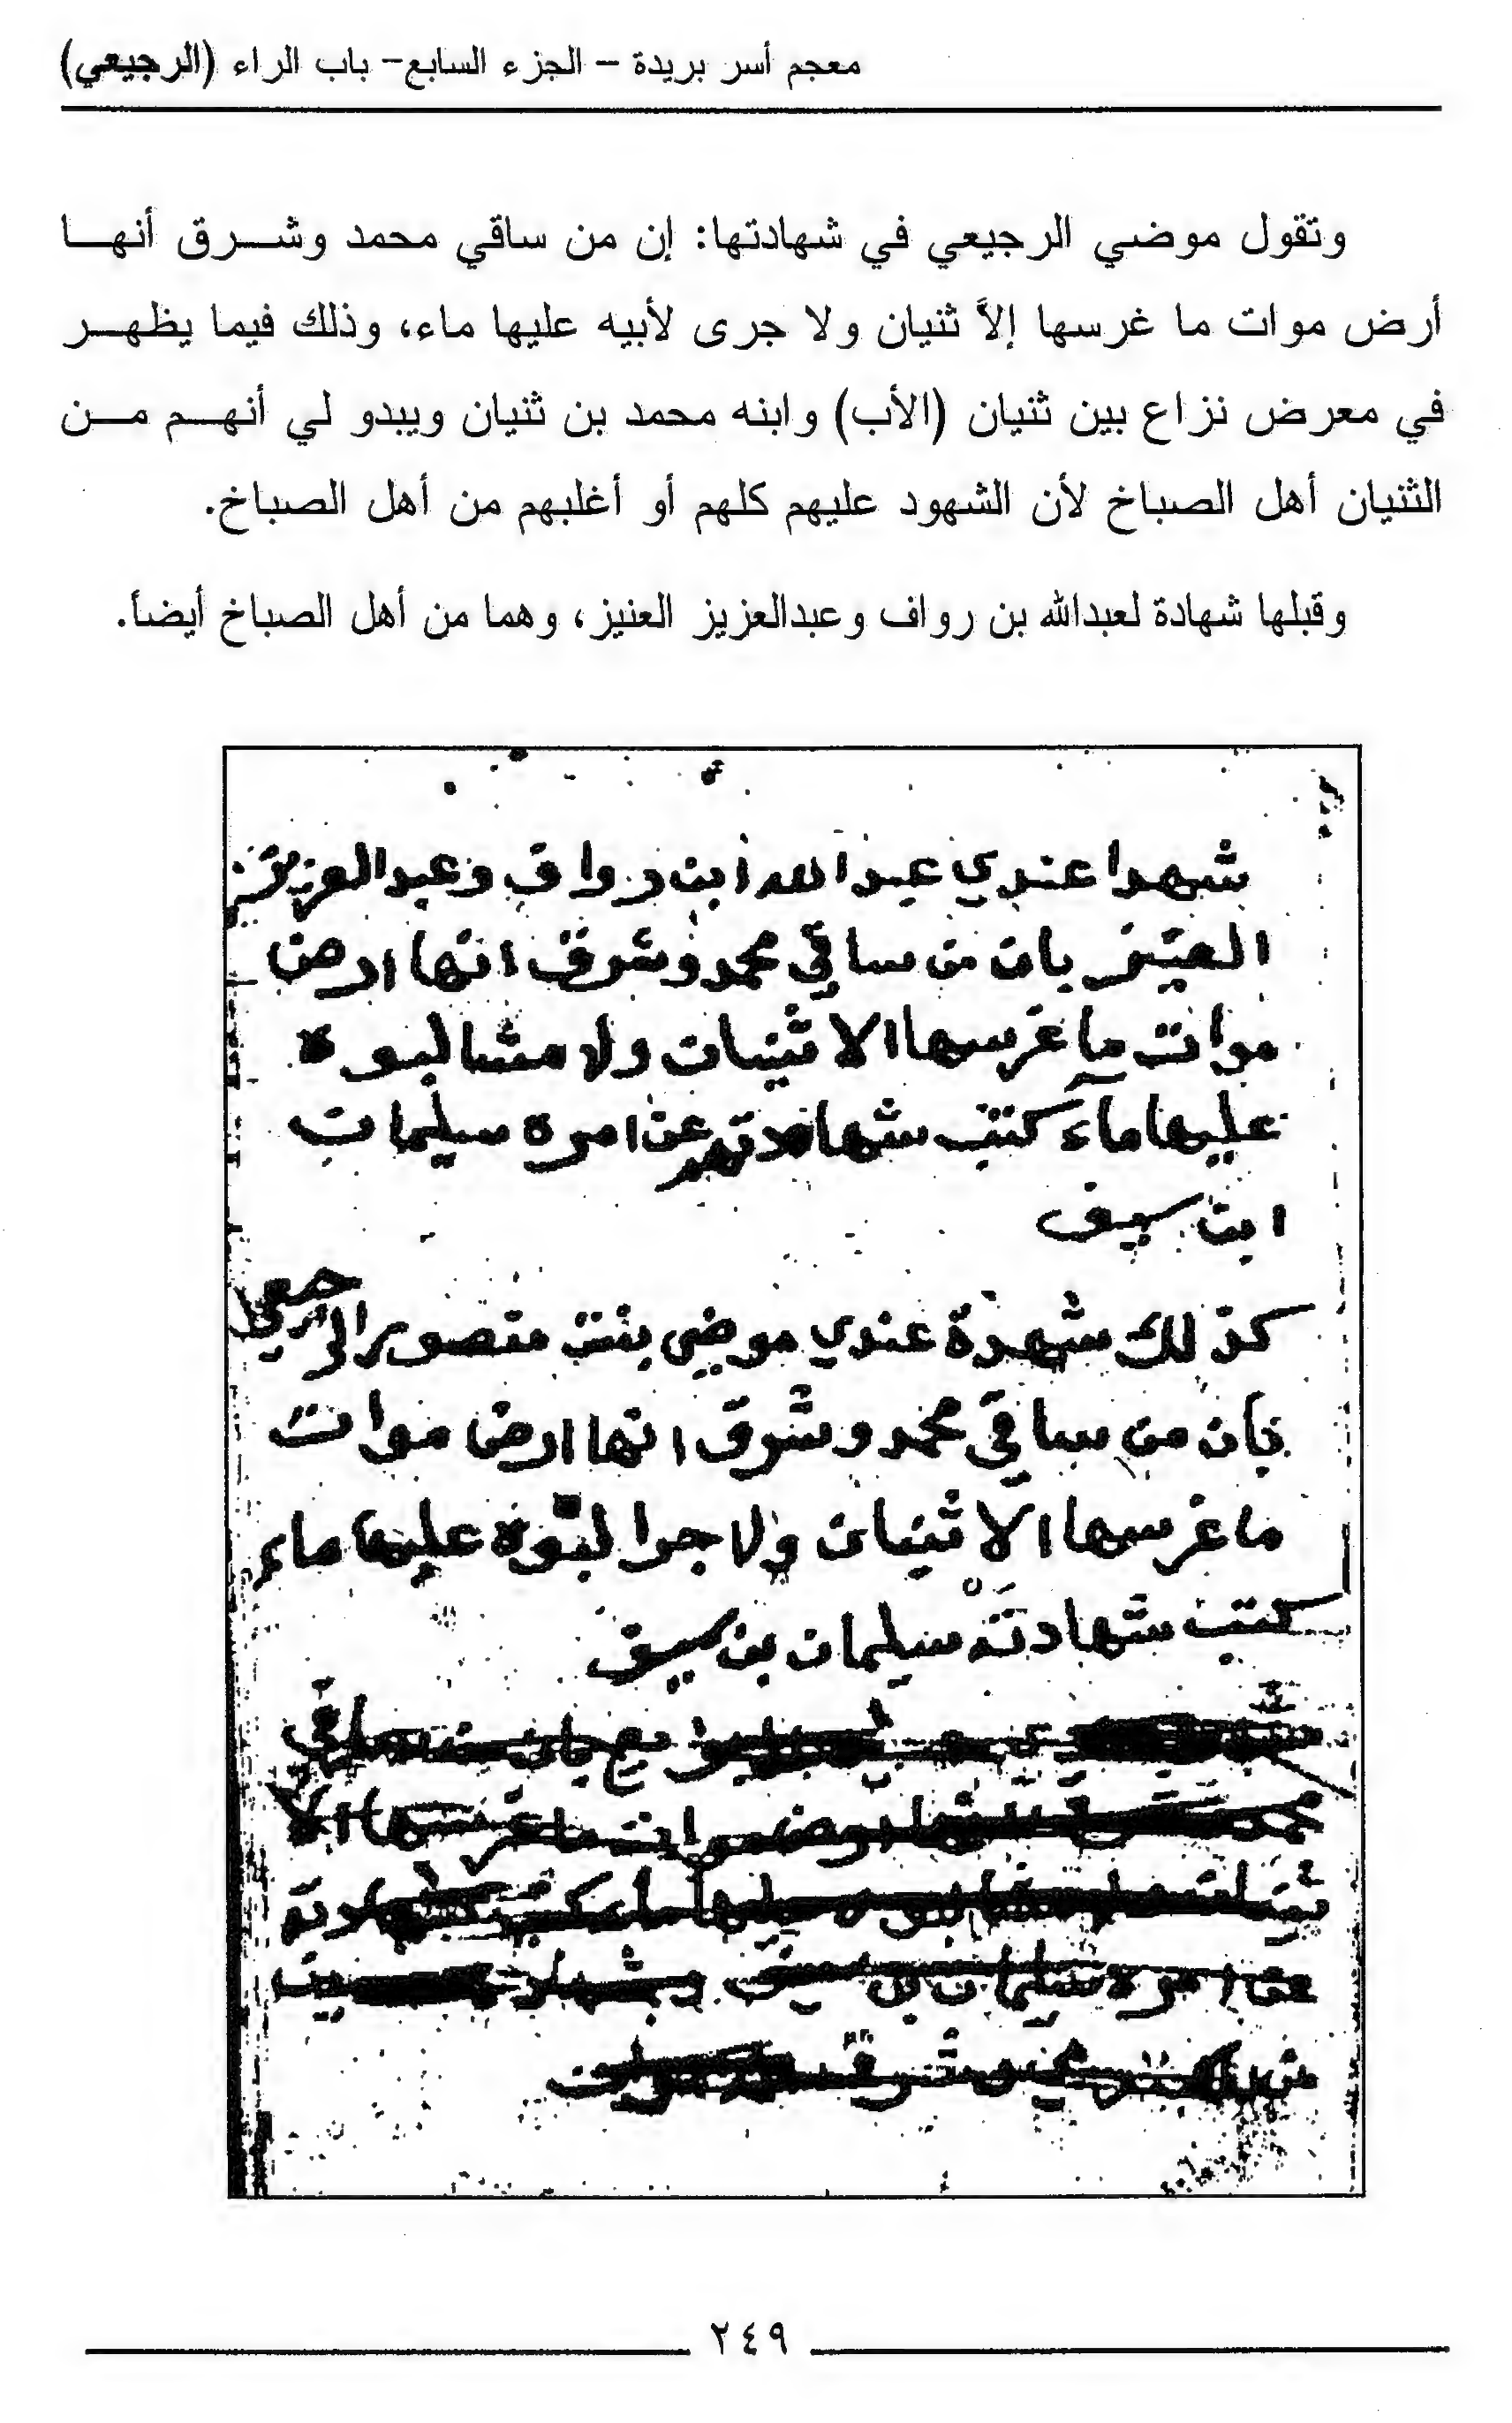 معجم أسر بريدة – الجزء السابع– باب الراء (الرجيعي)
وتقول موضي الرجيعي في شهادتها: إن من ساقي محمد وشرق أنها
أرض موات ما غرسها إلاَّ ثنيان ولا جرى لأبيه عليها ماء، وذلك فيما يظهر
في معرض نزاع بين ثنيان (الأب) وابنه محمد بن ثنيان ويبدو لي أنهم من
الثنيان أهل الصباخ لأن الشهود عليهم كلهم أو أغلبهم من أهل الصباخ.
وقبلها شهادة لعبدالله بن رواف وعبدالعزيز العنيز، وهما من أهل الصباخ أيضاً.
شهدا عندي عبدالله ابن رواف وعبدالعزيز
العنيز بان من ساقي محمد وشرق انها ارض
موات ما غرسها الا ثنيان ولا مشا لبوه
عليها ماء كتب شهادتهم عن امره سليمان
ابن سيف
كذلك شهدة عندي موضي بنت منصور الرجيعي
بأن من ساقي محمد وشرق انها ارض موات
ما غرسها الا ثنيان ولا جرا لبوه عليها ماء
كتب شهادته سليمان بن سيف
بان من ساقي
محمد ارض موات ما غرسها الا
ثنيان عليها ماء كتب شهادته
عن امره سليمان بن سيف
وشرق
٢٤٩